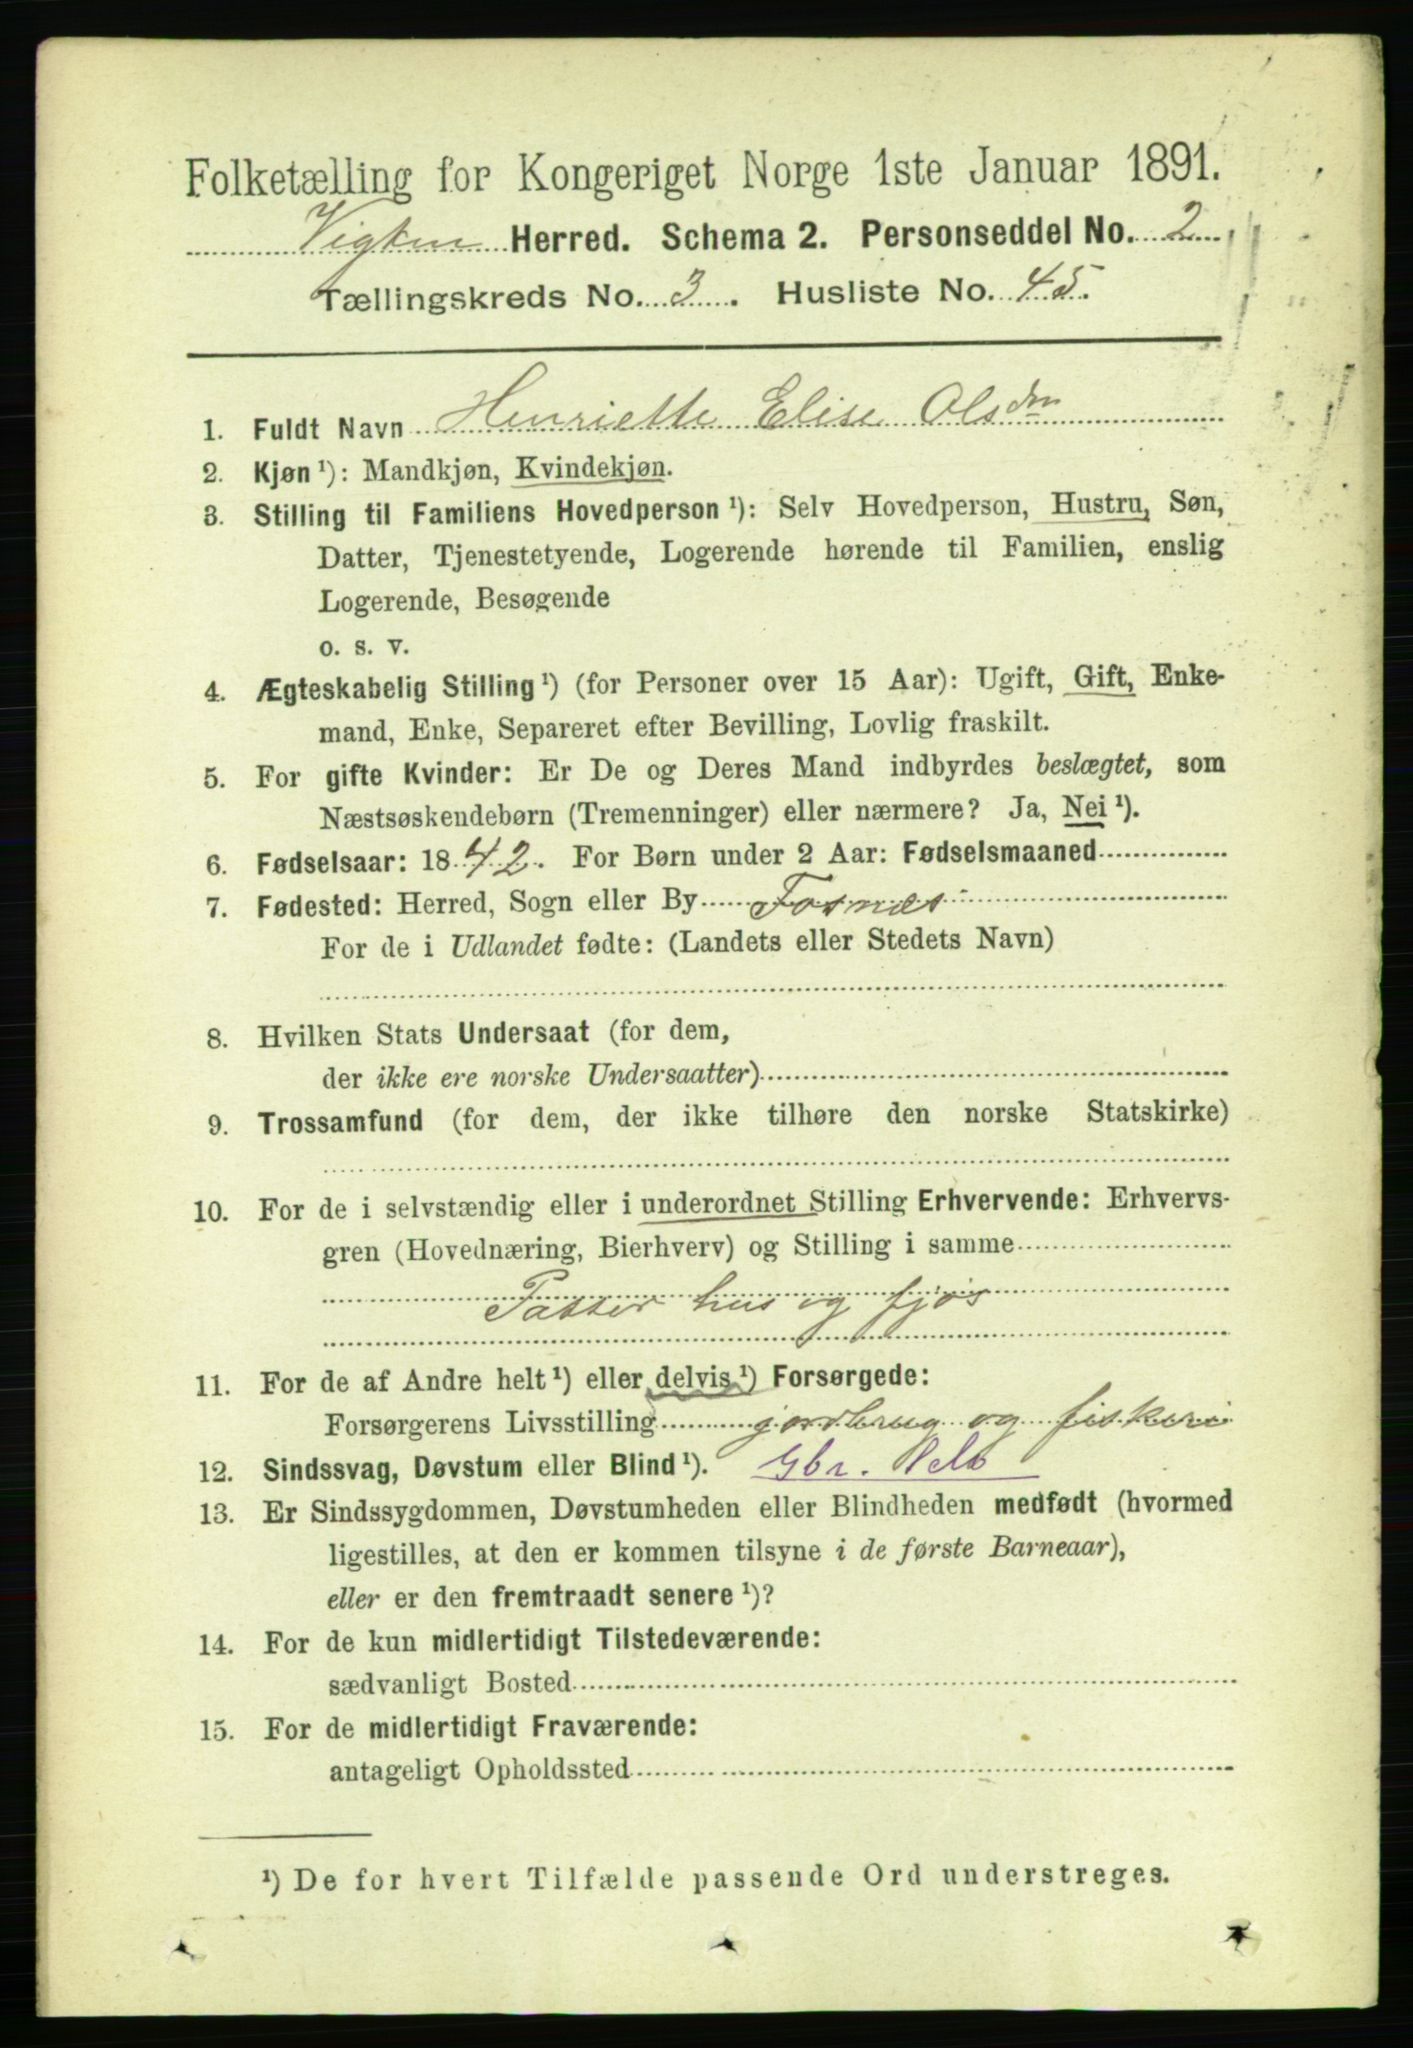 Folketælling for Kongeriget Norge 1ste Januar 1891.
Vigten Herred. Schema 2. Personseddel No. 2
Tællingskreds No. 3. Husliste No. 45.
1. Fuldt Navn Henriette Elise Olsdn
2. Kjøn ¹): Mandkjøn, Kvindekjøn.
3. Stilling til Familiens Hovedperson ¹): Selv Hovedperson, Hustru, Søn,
Datter, Tjenestetyende, Logerende hørende til Familien, enslig
Logerende, Besøgende
o. s. v.
4. Ægteskabelig Stilling ¹) (for Personer over 15 Aar): Ugift, Gift, Enke-
mand, Enke, Separeret efter Bevilling, Lovlig fraskilt.
5. For gifte Kvinder: Er De og Deres Mand indbyrdes beslægtet, som
Næstsøskendebørn (Tremenninger) eller nærmere? Ja, Nei ¹).
6. Fødselsaar: 1842. For Børn under 2 Aar: Fødselsmaaned
7. Fødested: Herred, Sogn eller By Fosnæs
For de i Udlandet fødte: (Landets eller Stedets Navn)
8. Hvilken Stats Undersaat (for dem,
der ikke ere norske Undersaatter)
9. Trossamfund (for dem, der ikke tilhøre den norske Statskirke)
10. For de i selvstændig eller i underordnet Stilling Erhvervende: Erhvervs-
gren (Hovednæring, Bierhverv) og Stilling i samme
Passer hus og fjøs
11. For de af Andre helt ¹) eller delvis ¹) Forsørgede:
Forsørgerens Livsstilling jordbrug og fiskeri
12. Sindssvag, Døvstum eller Blind ¹). Gbr. Selv
13. Er Sindssygdommen, Døvstumheden eller Blindheden medfødt (hvormed
ligestilles, at den er kommen tilsyne i de første Barneaar),
eller er den fremtraadt senere ¹)?
14. For de kun midlertidigt Tilstedeværende:
sædvanligt Bosted
15. For de midlertidigt Fraværende:
antageligt Opholdssted
¹) De for hvert Tilfælde passende Ord understreges.